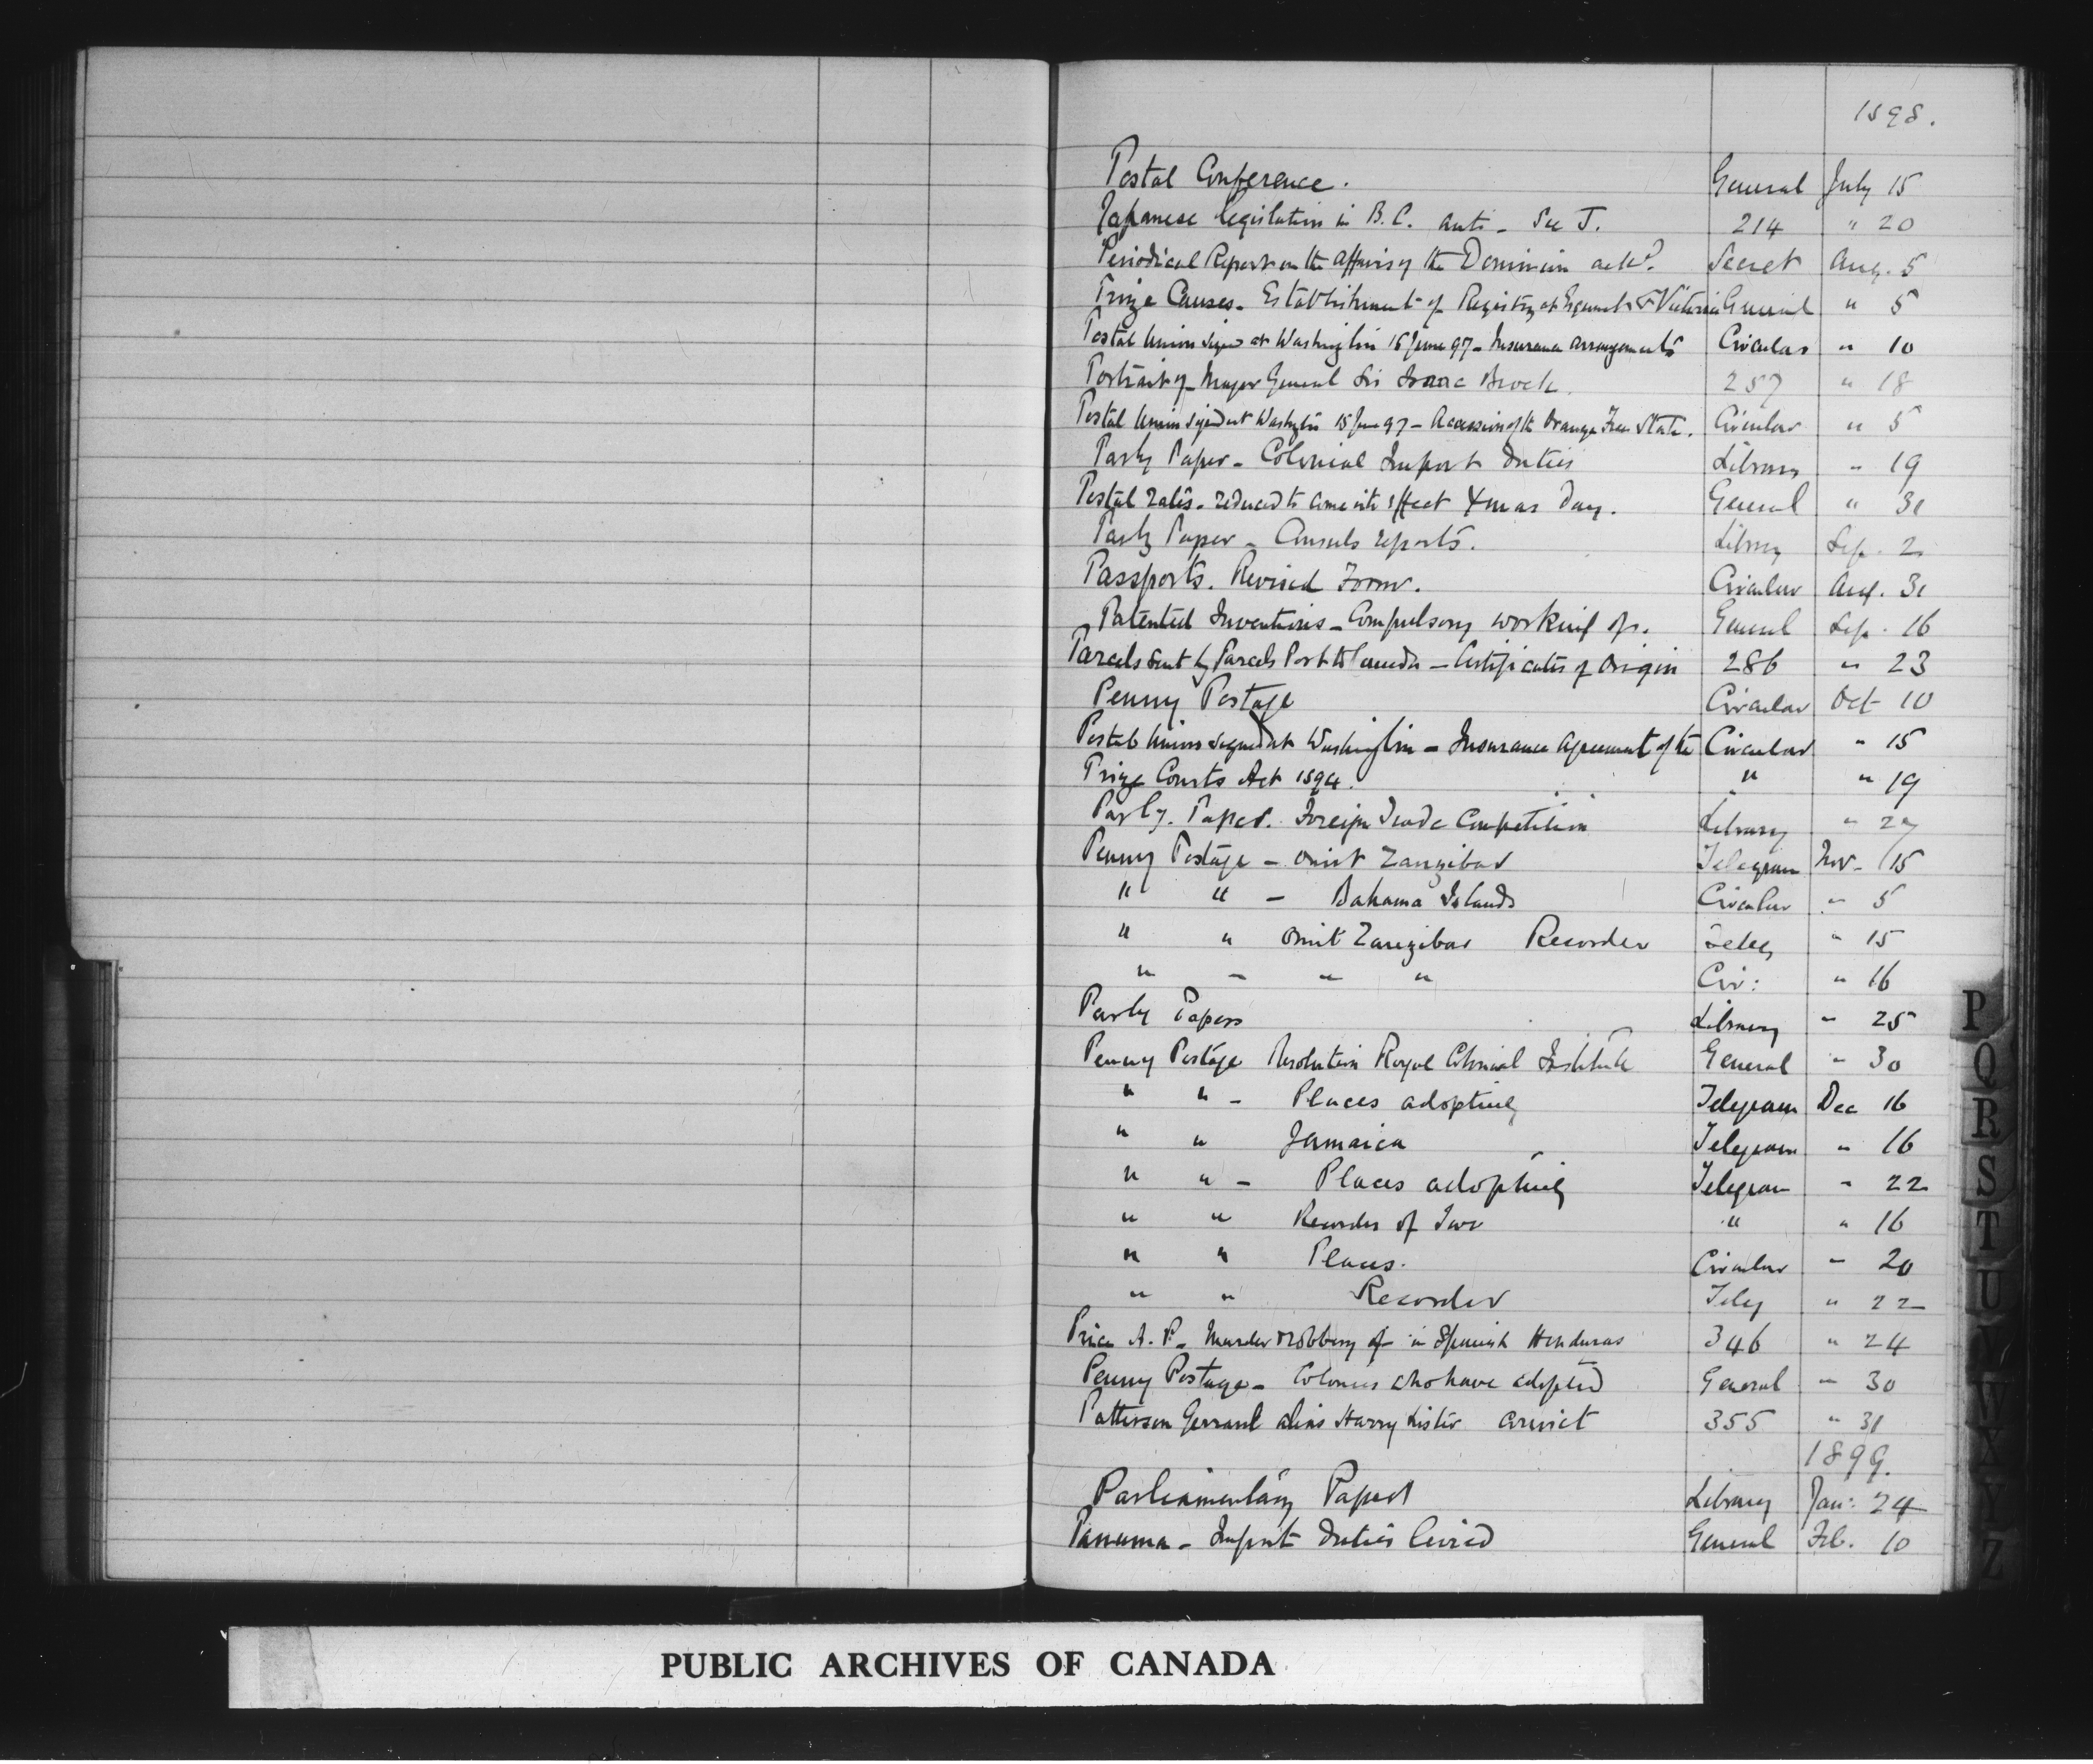 1898.
Postal Conference. General July 15
Japanese legislation in B.C. anti - See J. 214 " 20
Periodical Report on the Affairs of the Dominion ackd. Secret Aug. 5
Prize Causes - Establishment of Registry at Esquimalt & Victoria General " 5
Postal Union signed at Washington 15 June 97 - Insurance arrangements Circular " 10
Portrait of Major General Sir Isaac Brock. 257 " 18
Postal Union signed at Washgtn 15 June 97 - Accession of the Orange Free State. Circular " 5
Parly Paper - Colonial Import Duties Library " 19
Postal rates - reduced to come into effect Xmas Day. General " 31
Parly Paper - Consuls reports. Library Sep. 2
Passports. Revised Form. Circular Aug. 31
Patented Inventions - Compulsory working of. General Sep. 16
Parcels sent by Parcels Post to Canada - Certificates of Origin 286 " 23
Penny Postage Circular Oct 10
Postal Union signed at Washington - Insurance Agreement of the Circular " 15
Prize Courts Act 1894. " " 19
Parly. Paper. Foreign Trade Competition Library " 27
Penny Postage - omit Zanzibar Telegram Nov - 15
" " - Bahama Islands Circular " 5
" " omit Zanzibar Recorder Teleg " 15
" " " " Cir: " 16
Parly Papers Library " 25
Penny Postage Resolution Royal Colonial Institute General " 30
" " - Places adopting Telegram Dec 16
" " Jamaica Telegram " 16
" " - Places adopting Telegram " 22
" " Recorder of Two " " 16
" " Places. Circular " 20
" " Recorder Teleg " 22
Price A. P. - Murder & robbery of in Spanish Honduras 346 " 24
Penny Postage - Colonies who have adopted General " 30
Patterson Gerrard alias Harry Lister convict 355 " 31
1899.
Parliamentary Papers Library Jan: 24
Panama - Import Duties levied General Feb. 10
P
Q
R
S
T
U
V
W
X
Y
Z
PUBLIC ARCHIVES OF CANADA